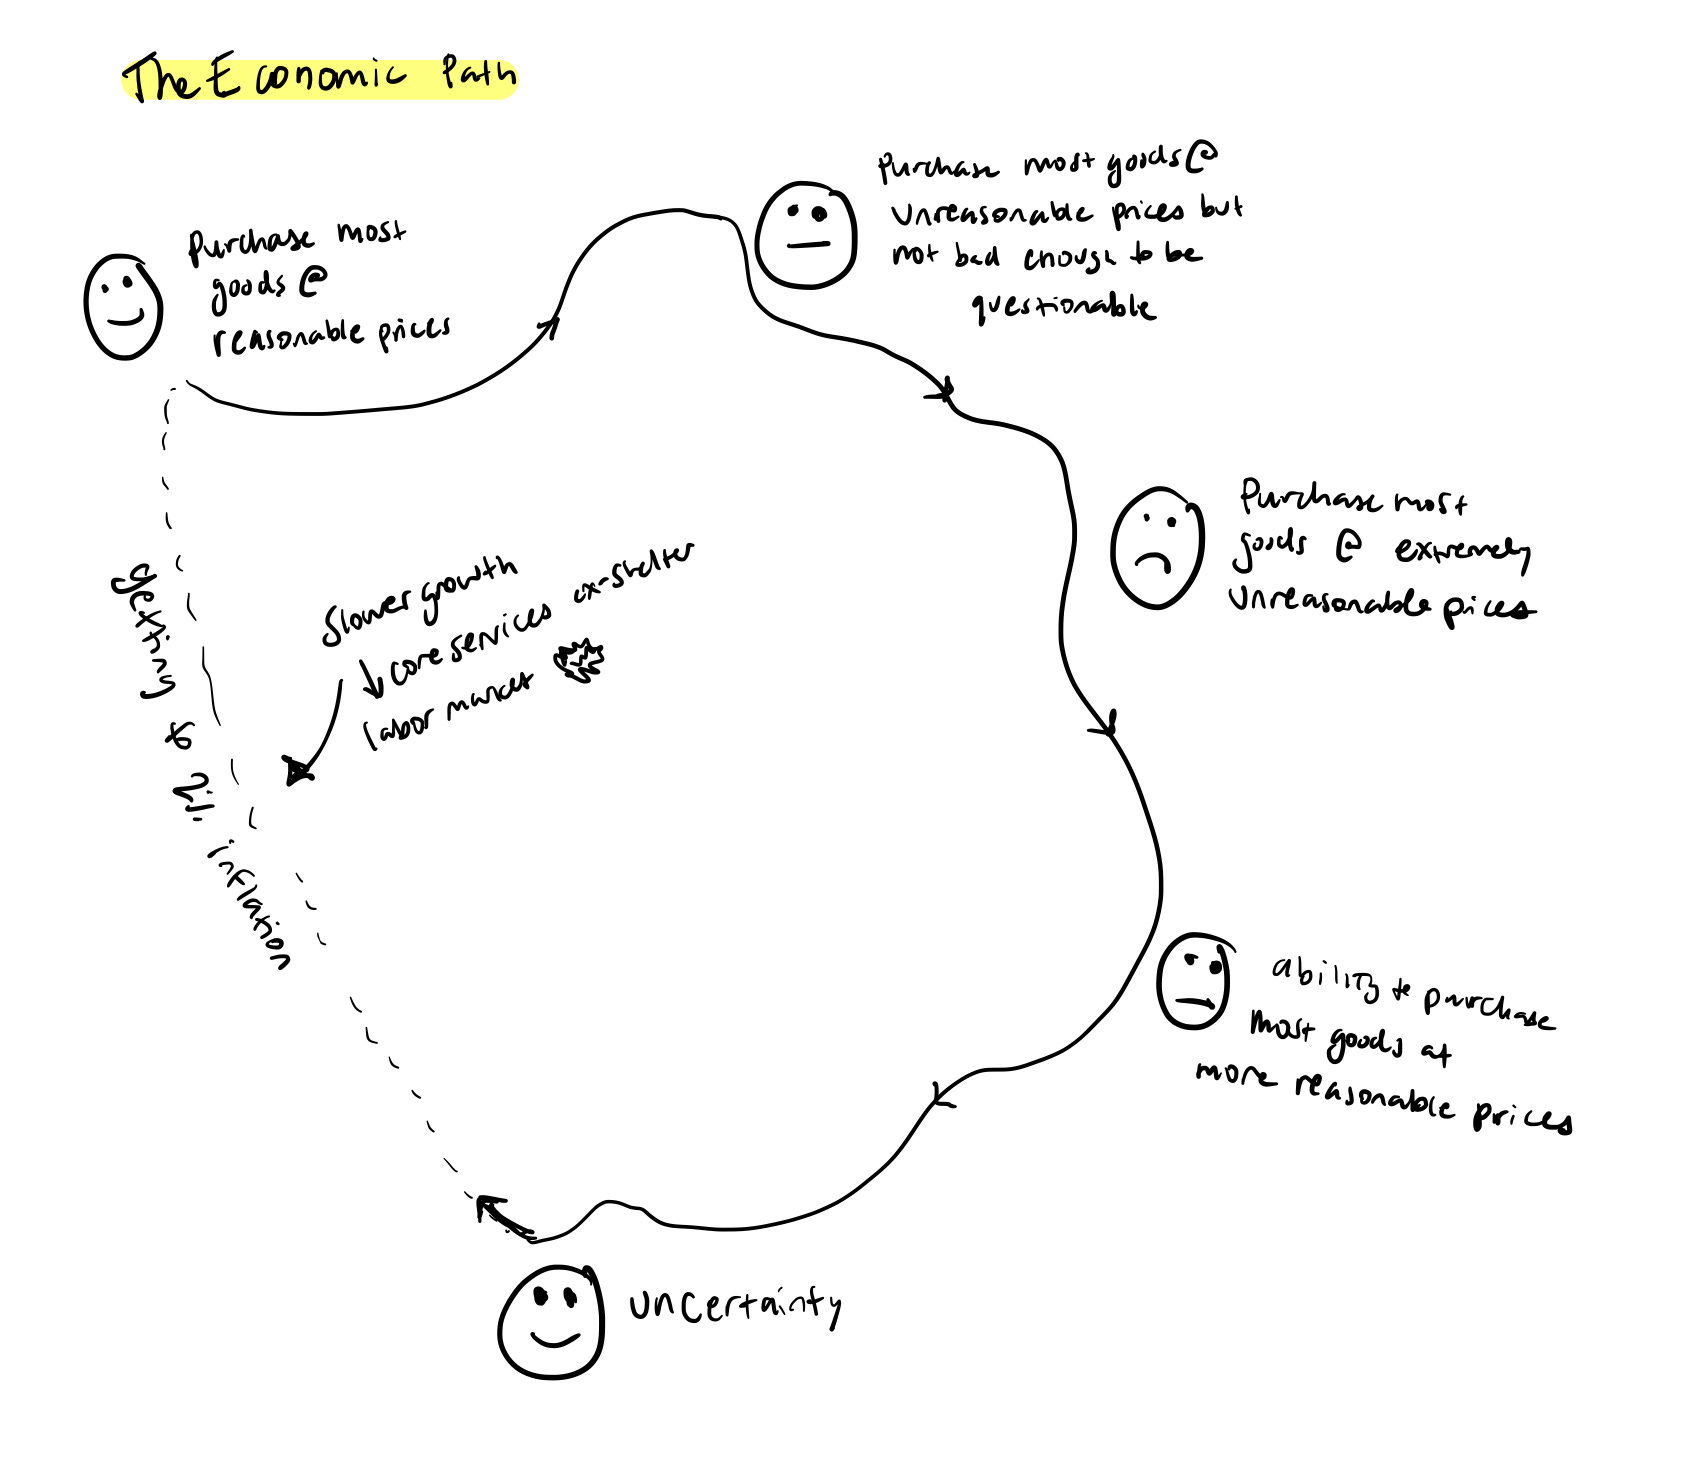 The Economic Path
Purchase most
goods @
reasonable prices
Purchase most goods @
unreasonable prices but
not bad enough to be
questionable
Purchase most
goods @ extremely
unreasonable prices
ability to purchase
most goods at
more reasonable prices
uncertainty
getting to 2% inflation
Slower growth
↓ core services ex-shelter
labor market